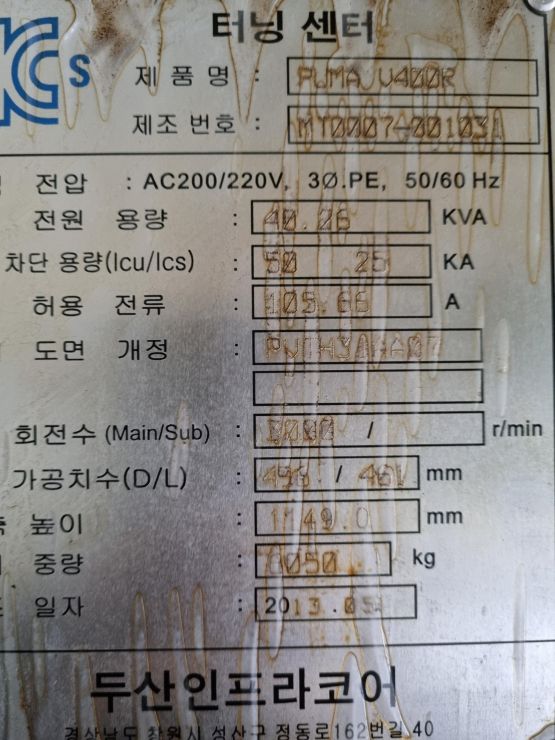 KCs
터닝 센터
제 품 명 : PUMA V400R
제조 번호 : MT0007-001031
전압 : AC200/220V, 3Ø.PE, 50/60 Hz
전원 용량 : 40.26 KVA
차단 용량(Icu/Ics) : 50 25 KA
허용 전류 : 105.66 A
도면 개정 :
회전수 (Main/Sub) : / r/min
가공치수(D/L) : 496 / 461 mm
높이 : 1149.0 mm
중량 : kg
일자 : 2013.05
두산인프라코어
경상남도 창원시 성산구 정동로162번길 40